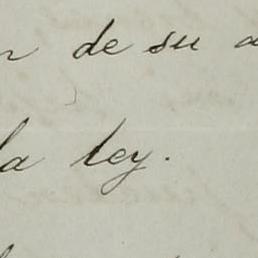 de su
la ley.